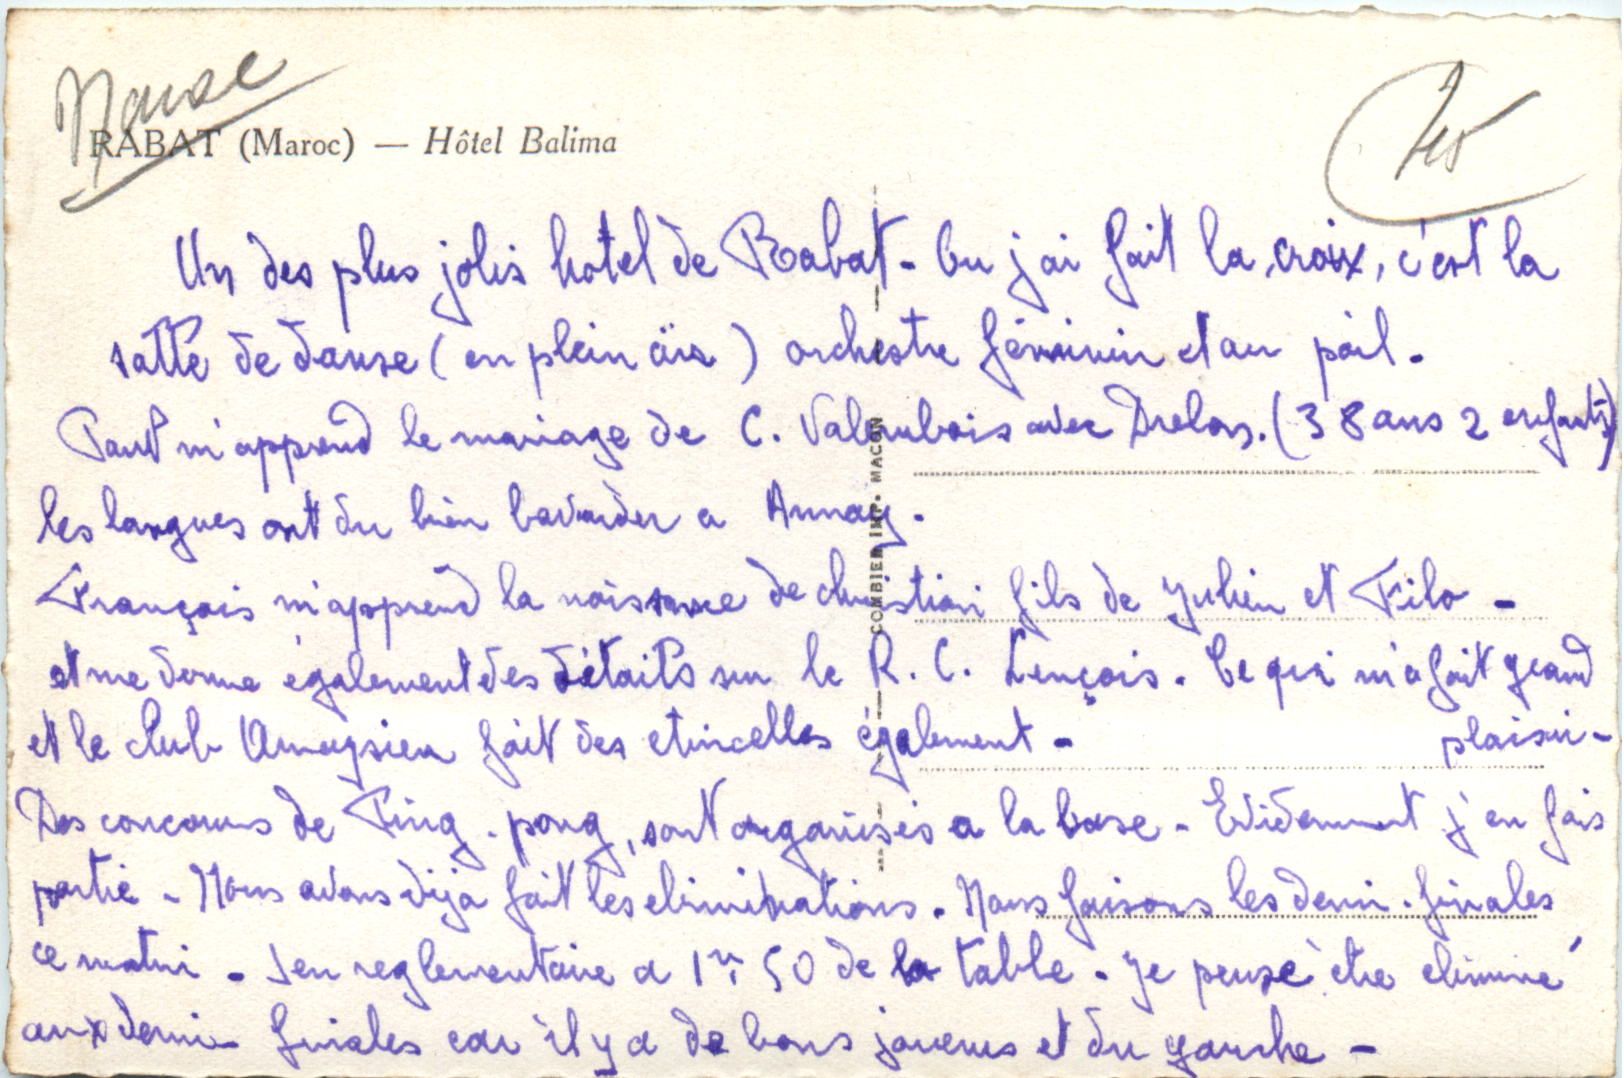 RABAT (Maroc) — Hôtel Balima
Un des plus jolis hotel de Rabat - Ou j'ai fait la croix, c'est la
salle de danse (en plein air) orchestre féminin et au poil.
Paul m'apprend le mariage de C. Valembois avec Drelon. (38 ans 2 enfants)
les langues ont du bien bavarder a Annay.
François m'apprend la naissance de christian fils de Julien et Filo -
et me donne également des détails sur le R. C. Lençois. Ce qui m'a fait grand
plaisir -
et le club Annaysien fait des etincelles également -
Des concours de Ping-pong, sont organisés a la base - Evidemment j'en fais
partie - Nous avons dija fait les eliminations. Nous faisons les demi-finales
ce matin - Jeu reglementaire a 1m 50 de la table. Je pense être eliminé
aux demi finales car il y a de bons joueurs et du gauche -
COMBIER IMP. MACON